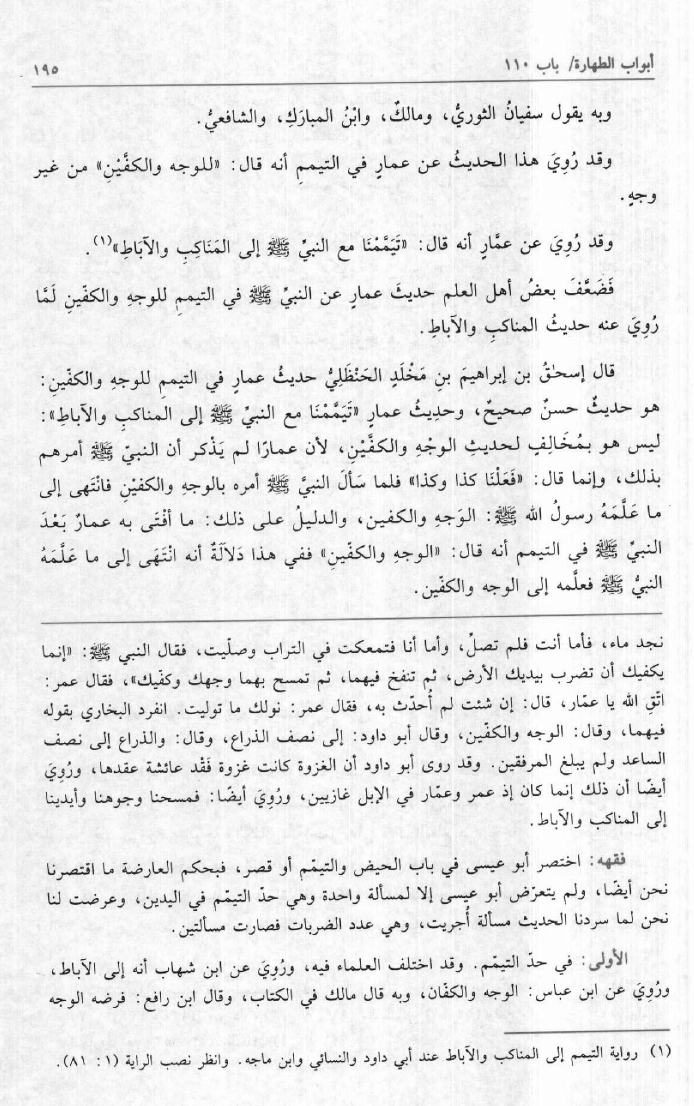 أبواب الطهارة/ باب ١١٠
١٩٥
وبه يقول سفيانُ الثوريُّ، ومالكٌ، وابْنُ المبارَكِ، والشافعيُّ.
وقد رُوِيَ هذا الحديثُ عن عمارٍ في التيممِ أنه قال: «للوجه والكفَّيْنِ» من غير
وجهٍ.
وقد رُوِيَ عن عمَّارٍ أنه قال: «تَيَمَّمْنَا مع النبيِّ ﷺ إلى المَنَاكِبِ والآبَاطِ»(١).
فَضَعَّفَ بعضُ أهل العلم حديثَ عمارٍ عن النبيِّ ﷺ في التيممِ للوجهِ والكفّينِ لَمَّا
رُوِيَ عنه حديثُ المناكبِ والآباطِ.
قال إسحٰقُ بن إبراهيمَ بنِ مَخْلَدٍ الحَنْظَلِيُّ حديثُ عمارٍ في التيممِ للوجهِ والكفّينِ:
هو حديثٌ حسنٌ صحيحٌ، وحديثُ عمارٍ «تَيَمَّمْنَا مع النبيِّ ﷺ إلى المناكبِ والآباطِ»:
ليس هو بمُخَالِفٍ لحديثِ الوجْهِ والكفَّيْنِ، لأن عمارًا لم يَذْكر أن النبيّ ﷺ أمرهم
بذلك، وإنما قال: «فَعَلْنَا كذا وكذا» فلما سَألَ النبيَّ ﷺ أمره بالوجهِ والكفيْنِ فانْتَهى إلى
ما عَلَّمَهُ رسولُ الله ﷺ: الوَجهِ والكفين، والدليلُ على ذلك: ما أفْتَى به عمارٌ بَعْدَ
النبيِّ ﷺ في التيمم أنه قال: «الوجهِ والكفّينِ» ففي هذا دَلاَلَةٌ أنه انْتَهَى إلى ما عَلَّمَهُ
النبيُّ ﷺ فعلَّمه إلى الوجه والكفّين.
نجد ماء، فأما أنت فلم تصلِّ، وأما أنا فتمعكت في التراب وصلّيت، فقال النبي ﷺ: «إنما
يكفيك أن تضرب بيديك الأرض، ثم تنفخ فيهما، ثم تمسح بهما وجهك وكفّيك»، فقال عمر:
اتّقِ الله يا عمّار، قال: إن شئت لم أُحدّث به، فقال عمر: نولك ما توليت. انفرد البخاري بقوله
فيهما، وقال: الوجه والكفّين، وقال أبو داود: إلى نصف الذراع، وقال: والذراع إلى نصف
الساعد ولم يبلغ المرفقين. وقد روى أبو داود أن الغزوة كانت غزوة فَقْد عائشة عقدها، ورُوِيَ
أيضًا أن ذلك إنما كان إذ عمر وعمّار في الإبل غازيين، ورُوِيَ أيضًا: فمسحنا وجوهنا وأيدينا
إلى المناكب والآباط.
فقهه: اختصر أبو عيسى في باب الحيض والتيمّم أو قصر، فبحكم العارضة ما اقتصرنا
نحن أيضًا، ولم يتعرّض أبو عيسى إلا لمسألة واحدة وهي حدّ التيمّم في اليدين، وعرضت لنا
نحن لما سردنا الحديث مسألة أُجريت، وهي عدد الضربات فصارت مسألتين.
الأولى: في حدّ التيمّم. وقد اختلف العلماء فيه، ورُوِيَ عن ابن شهاب أنه إلى الآباط،
ورُوِيَ عن ابن عباس: الوجه والكفّان، وبه قال مالك في الكتاب، وقال ابن رافع: فرضه الوجه
(١) رواية التيمم إلى المناكب والآباط عند أبي داود والنسائي وابن ماجه. وانظر نصب الراية (١: ٨١).